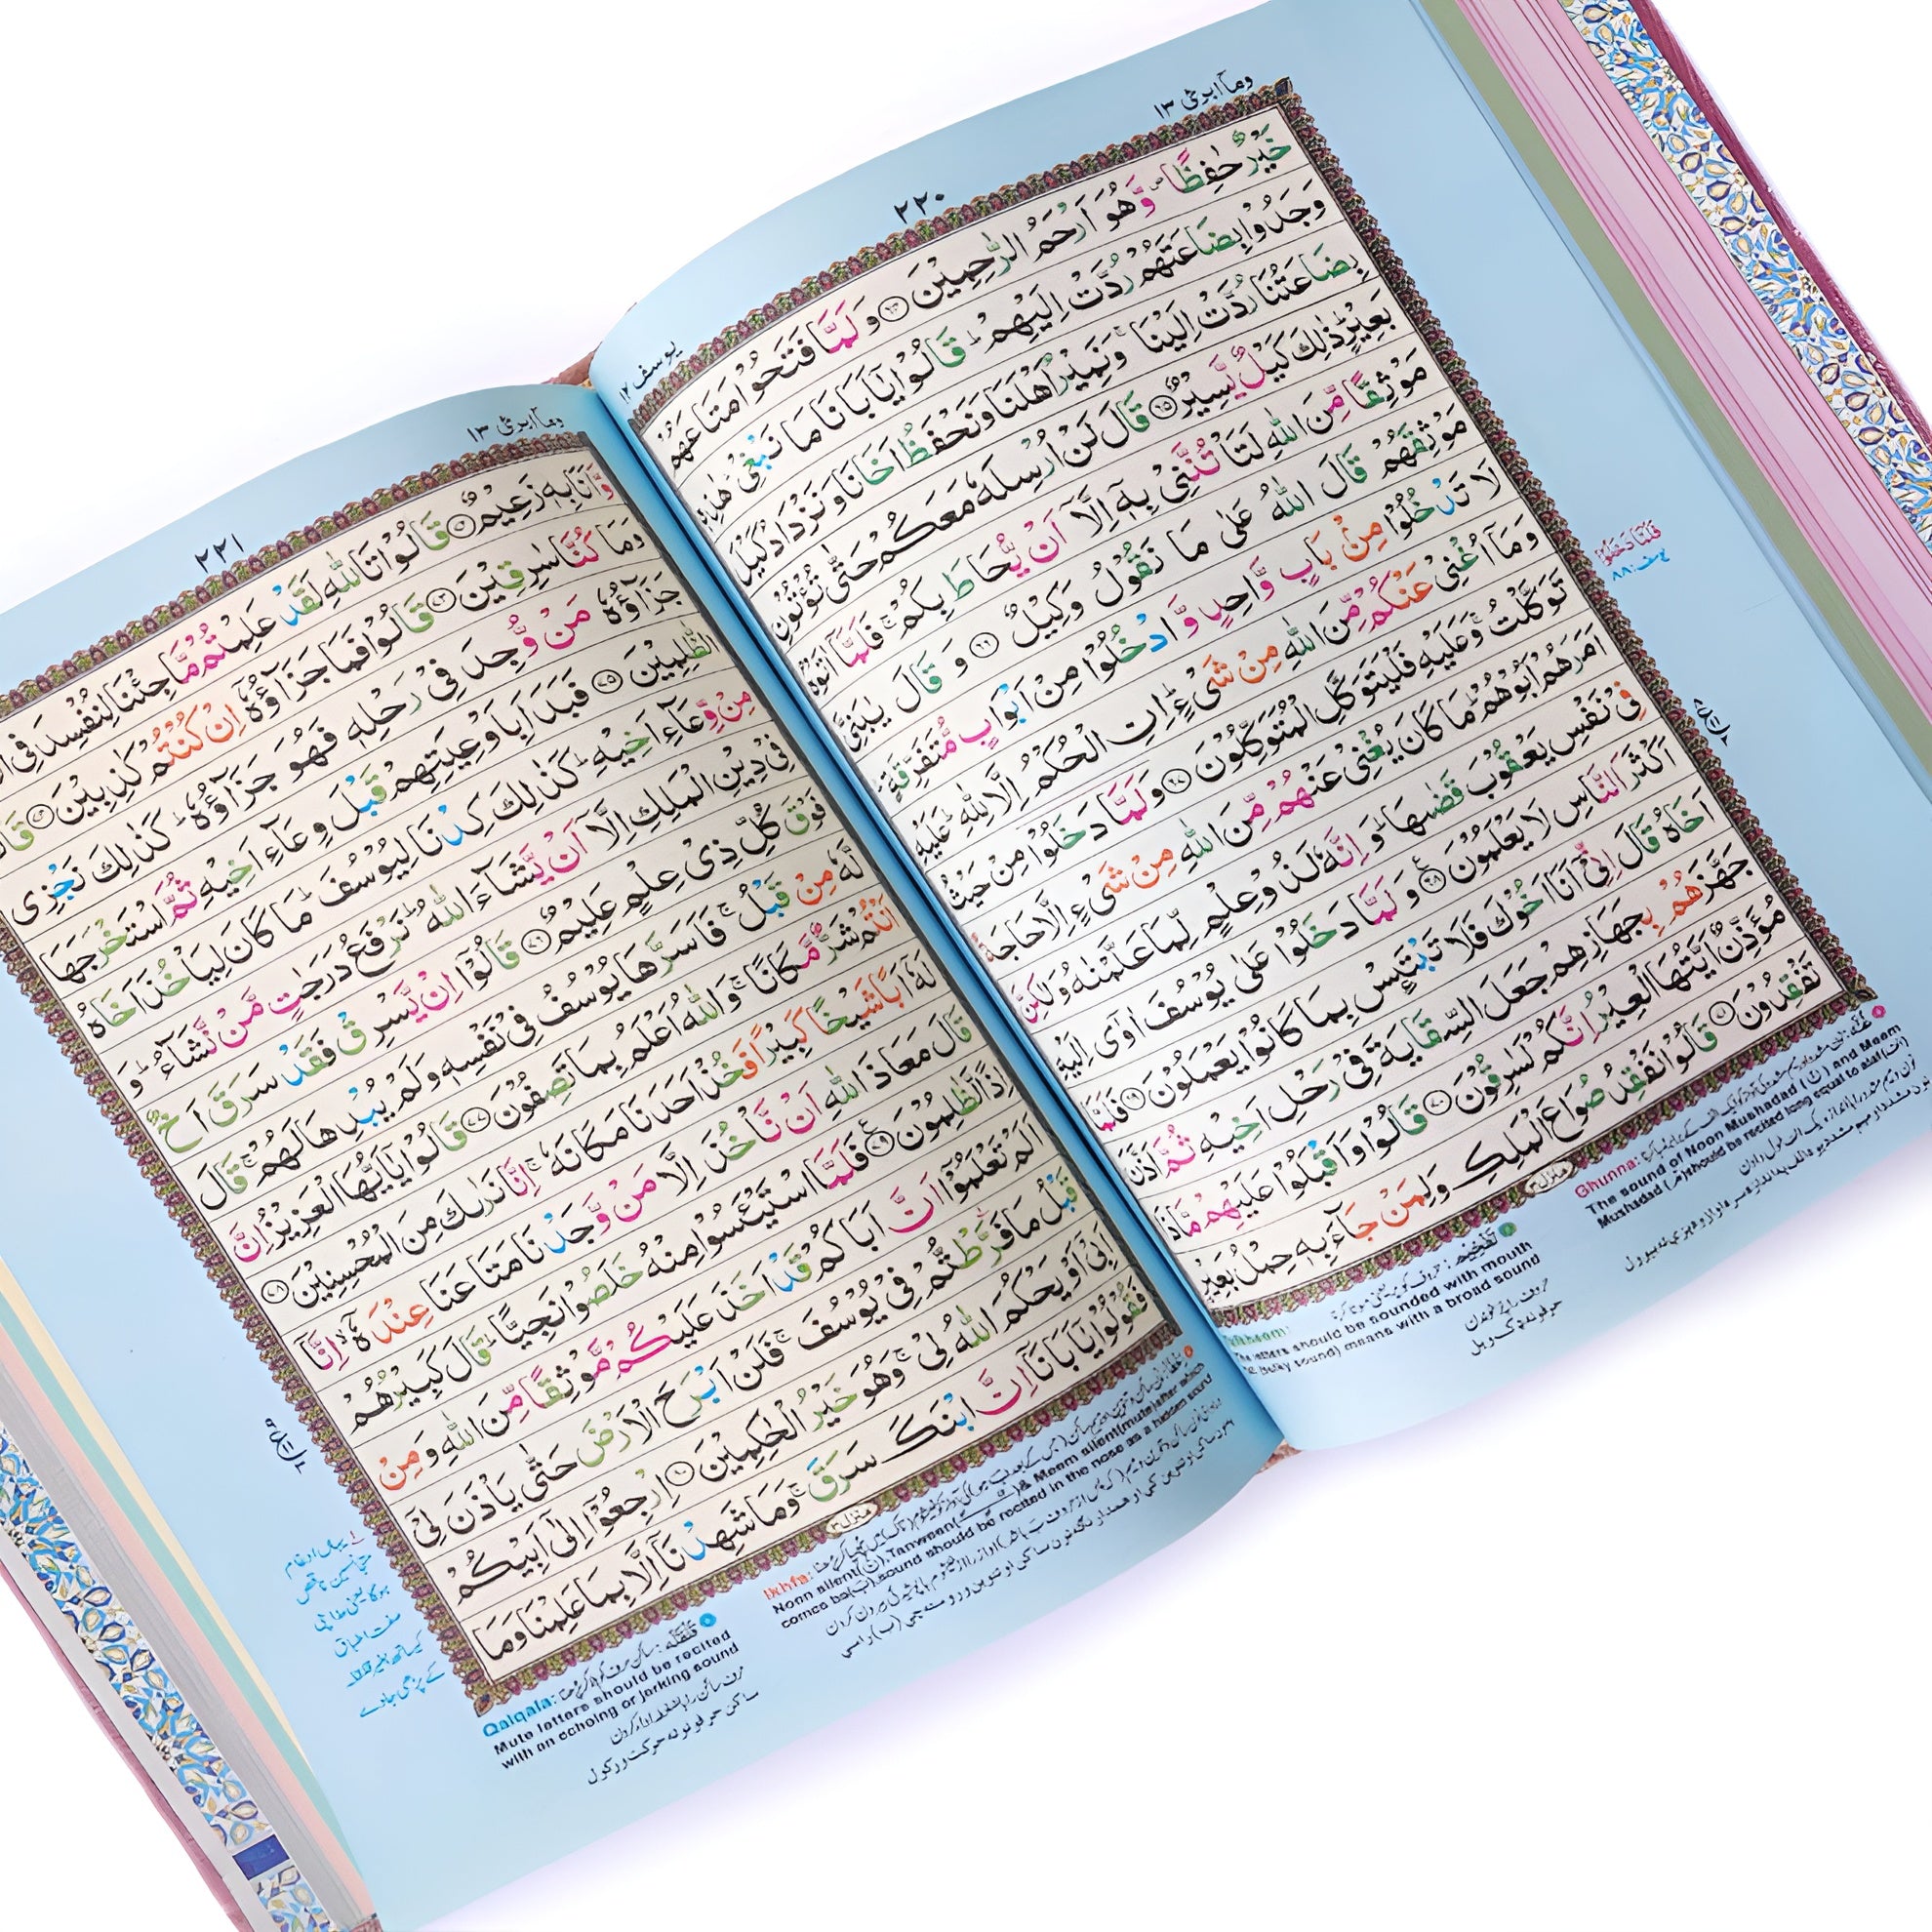 وما ابرئ ١٣
٢٢٠
يوسف ١٢
خَيْرٌ حٰفِظًا ۪ وَّهُوَ اَرْحَمُ الرّٰحِمِيْنَ ﴿۶۴﴾ وَ لَمَّا فَتَحُوْا مَتَاعَهُمْ
وَجَدُوْا بِضَاعَتَهُمْ رُدَّتْ اِلَيْهِمْ ؕ قَالُوْا يٰۤاَبَانَا مَا نَبْغِيْ ؕ هٰذِهٖ
بِضَاعَتُنَا رُدَّتْ اِلَيْنَا ۚ وَنَمِيْرُ اَهْلَنَا وَنَحْفَظُ اَخَانَا وَنَزْدَادُ كَيْلَ
بَعِيْرٍ ؕ ذٰلِكَ كَيْلٌ يَّسِيْرٌ ﴿۶۵﴾ قَالَ لَنْ اُرْسِلَهٗ مَعَكُمْ حَتّٰى تُؤْتُوْنِ
مَوْثِقًا مِّنَ اللّٰهِ لَتَاْتُنَّنِيْ بِهٖۤ اِلَّاۤ اَنْ يُّحَاطَ بِكُمْ ۚ فَلَمَّاۤ اٰتَوْهُ
مَوْثِقَهُمْ قَالَ اللّٰهُ عَلٰى مَا نَقُوْلُ وَكِيْلٌ ﴿۶۶﴾ وَ قَالَ يٰبَنِيَّ
لَا تَدْخُلُوْا مِنْۢ بَابٍ وَّاحِدٍ وَّادْخُلُوْا مِنْ اَبْوَابٍ مُّتَفَرِّقَةٍ ؕ
وَمَاۤ اُغْنِيْ عَنْكُمْ مِّنَ اللّٰهِ مِنْ شَيْءٍ ؕ اِنِ الْحُكْمُ اِلَّا لِلّٰهِ ؕ عَلَيْهِ
تَوَكَّلْتُ ۚ وَعَلَيْهِ فَلْيَتَوَكَّلِ الْمُتَوَكِّلُوْنَ ﴿۶۷﴾ وَ لَمَّا دَخَلُوْا مِنْ حَيْثُ
اَمَرَهُمْ اَبُوْهُمْ ؕ مَا كَانَ يُغْنِيْ عَنْهُمْ مِّنَ اللّٰهِ مِنْ شَيْءٍ اِلَّا حَاجَةً
فِيْ نَفْسِ يَعْقُوْبَ قَضٰىهَا ؕ وَ اِنَّهٗ لَذُوْ عِلْمٍ لِّمَا عَلَّمْنٰهُ وَلٰكِنَّ
اَكْثَرَ النَّاسِ لَا يَعْلَمُوْنَ ﴿۶۸﴾ وَ لَمَّا دَخَلُوْا عَلٰى يُوْسُفَ اٰوٰۤى اِلَيْهِ
اَخَاهُ قَالَ اِنِّيْۤ اَنَا اَخُوْكَ فَلَا تَبْتَىِٕسْ بِمَا كَانُوْا يَعْمَلُوْنَ ﴿۶۹﴾ فَلَمَّا
جَهَّزَهُمْ بِجَهَازِهِمْ جَعَلَ السِّقَايَةَ فِيْ رَحْلِ اَخِيْهِ ثُمَّ اَذَّنَ
مُؤَذِّنٌ اَيَّتُهَا الْعِيْرُ اِنَّكُمْ لَسٰرِقُوْنَ ﴿۷۰﴾ قَالُوْا وَاَقْبَلُوْا عَلَيْهِمْ مَّاذَا
تَفْقِدُوْنَ ﴿۷۱﴾ قَالُوْا نَفْقِدُ صُوَاعَ الْمَلِكِ وَلِمَنْ جَآءَ بِهٖ حِمْلُ بَعِيْرٍ
منزل ٣
Ghunna:
The sound of Noon Mushadad (نّ) and Meem
Mushdad (مّ) should be recited long equal to alaf
تَفْخِيْم:
letters should be sounded with mouth
sound) means with a broad sound
وما ابرئ ١٣
٢٢١
وَّاَنَا بِهٖ زَعِيْمٌ ﴿۷۲﴾ قَالُوْا تَاللّٰهِ لَقَدْ عَلِمْتُمْ مَّا جِئْنَا لِنُفْسِدَ فِي
وَمَا كُنَّا سٰرِقِيْنَ ﴿۷۳﴾ قَالُوْا فَمَا جَزَآؤُهٗۤ اِنْ كُنْتُمْ كٰذِبِيْنَ ﴿۷۴﴾
جَزَآؤُهٗ مَنْ وُّجِدَ فِيْ رَحْلِهٖ فَهُوَ جَزَآؤُهٗ ؕ كَذٰلِكَ نَجْزِي
الظّٰلِمِيْنَ ﴿۷۵﴾ فَبَدَاَ بِاَوْعِيَتِهِمْ قَبْلَ وِعَآءِ اَخِيْهِ ثُمَّ اسْتَخْرَجَهَا
مِنْ وِّعَآءِ اَخِيْهِ ؕ كَذٰلِكَ كِدْنَا لِيُوْسُفَ ؕ مَا كَانَ لِيَاْخُذَ اَخَاهُ
فِيْ دِيْنِ الْمَلِكِ اِلَّاۤ اَنْ يَّشَآءَ اللّٰهُ ؕ نَرْفَعُ دَرَجٰتٍ مَّنْ نَّشَآءُ ؕ وَ
فَوْقَ كُلِّ ذِيْ عِلْمٍ عَلِيْمٌ ﴿۷۶﴾ قَالُوْۤا اِنْ يَّسْرِقْ فَقَدْ سَرَقَ اَخٌ
لَّهٗ مِنْ قَبْلُ ۚ فَاَسَرَّهَا يُوْسُفُ فِيْ نَفْسِهٖ وَلَمْ يُبْدِهَا لَهُمْ ۚ قَالَ
اَنْتُمْ شَرٌّ مَّكَانًا ۚ وَاللّٰهُ اَعْلَمُ بِمَا تَصِفُوْنَ ﴿۷۷﴾ قَالُوْا يٰۤاَيُّهَا الْعَزِيْزُ اِنَّ
لَهٗۤ اَبًا شَيْخًا كَبِيْرًا فَخُذْ اَحَدَنَا مَكَانَهٗ ۚ اِنَّا نَرٰىكَ مِنَ الْمُحْسِنِيْنَ ﴿۷۸﴾
قَالَ مَعَاذَ اللّٰهِ اَنْ نَّاْخُذَ اِلَّا مَنْ وَّجَدْنَا مَتَاعَنَا عِنْدَهٗۤ ۙ اِنَّاۤ
اِذًا لَّظٰلِمُوْنَ ﴿۷۹﴾ فَلَمَّا اسْتَيْـَٔسُوْا مِنْهُ خَلَصُوْا نَجِيًّا ؕ قَالَ كَبِيْرُهُمْ
اَلَمْ تَعْلَمُوْۤا اَنَّ اَبَاكُمْ قَدْ اَخَذَ عَلَيْكُمْ مَّوْثِقًا مِّنَ اللّٰهِ وَ مِنْ
قَبْلُ مَا فَرَّطْتُّمْ فِيْ يُوْسُفَ ۚ فَلَنْ اَبْرَحَ الْاَرْضَ حَتّٰى يَاْذَنَ لِيْۤ
اَبِيْۤ اَوْ يَحْكُمَ اللّٰهُ لِيْ ۚ وَهُوَ خَيْرُ الْحٰكِمِيْنَ ﴿۸۰﴾ اِرْجِعُوْۤا اِلٰۤى اَبِيْكُمْ
فَقُوْلُوْا يٰۤاَبَانَاۤ اِنَّ ابْنَكَ سَرَقَ ۚ وَمَا شَهِدْنَاۤ اِلَّا بِمَا عَلِمْنَا وَمَا
منزل ٣
Ikhfa:
Noon silent(نْ),Tanween & Meem silent(mute)after which
comes ba(ب)sound should be recited in the nose as a hidden sound
Qalqala: قَلْقَلَه:
Mute letters should be recited
with an echoing or jerking sound